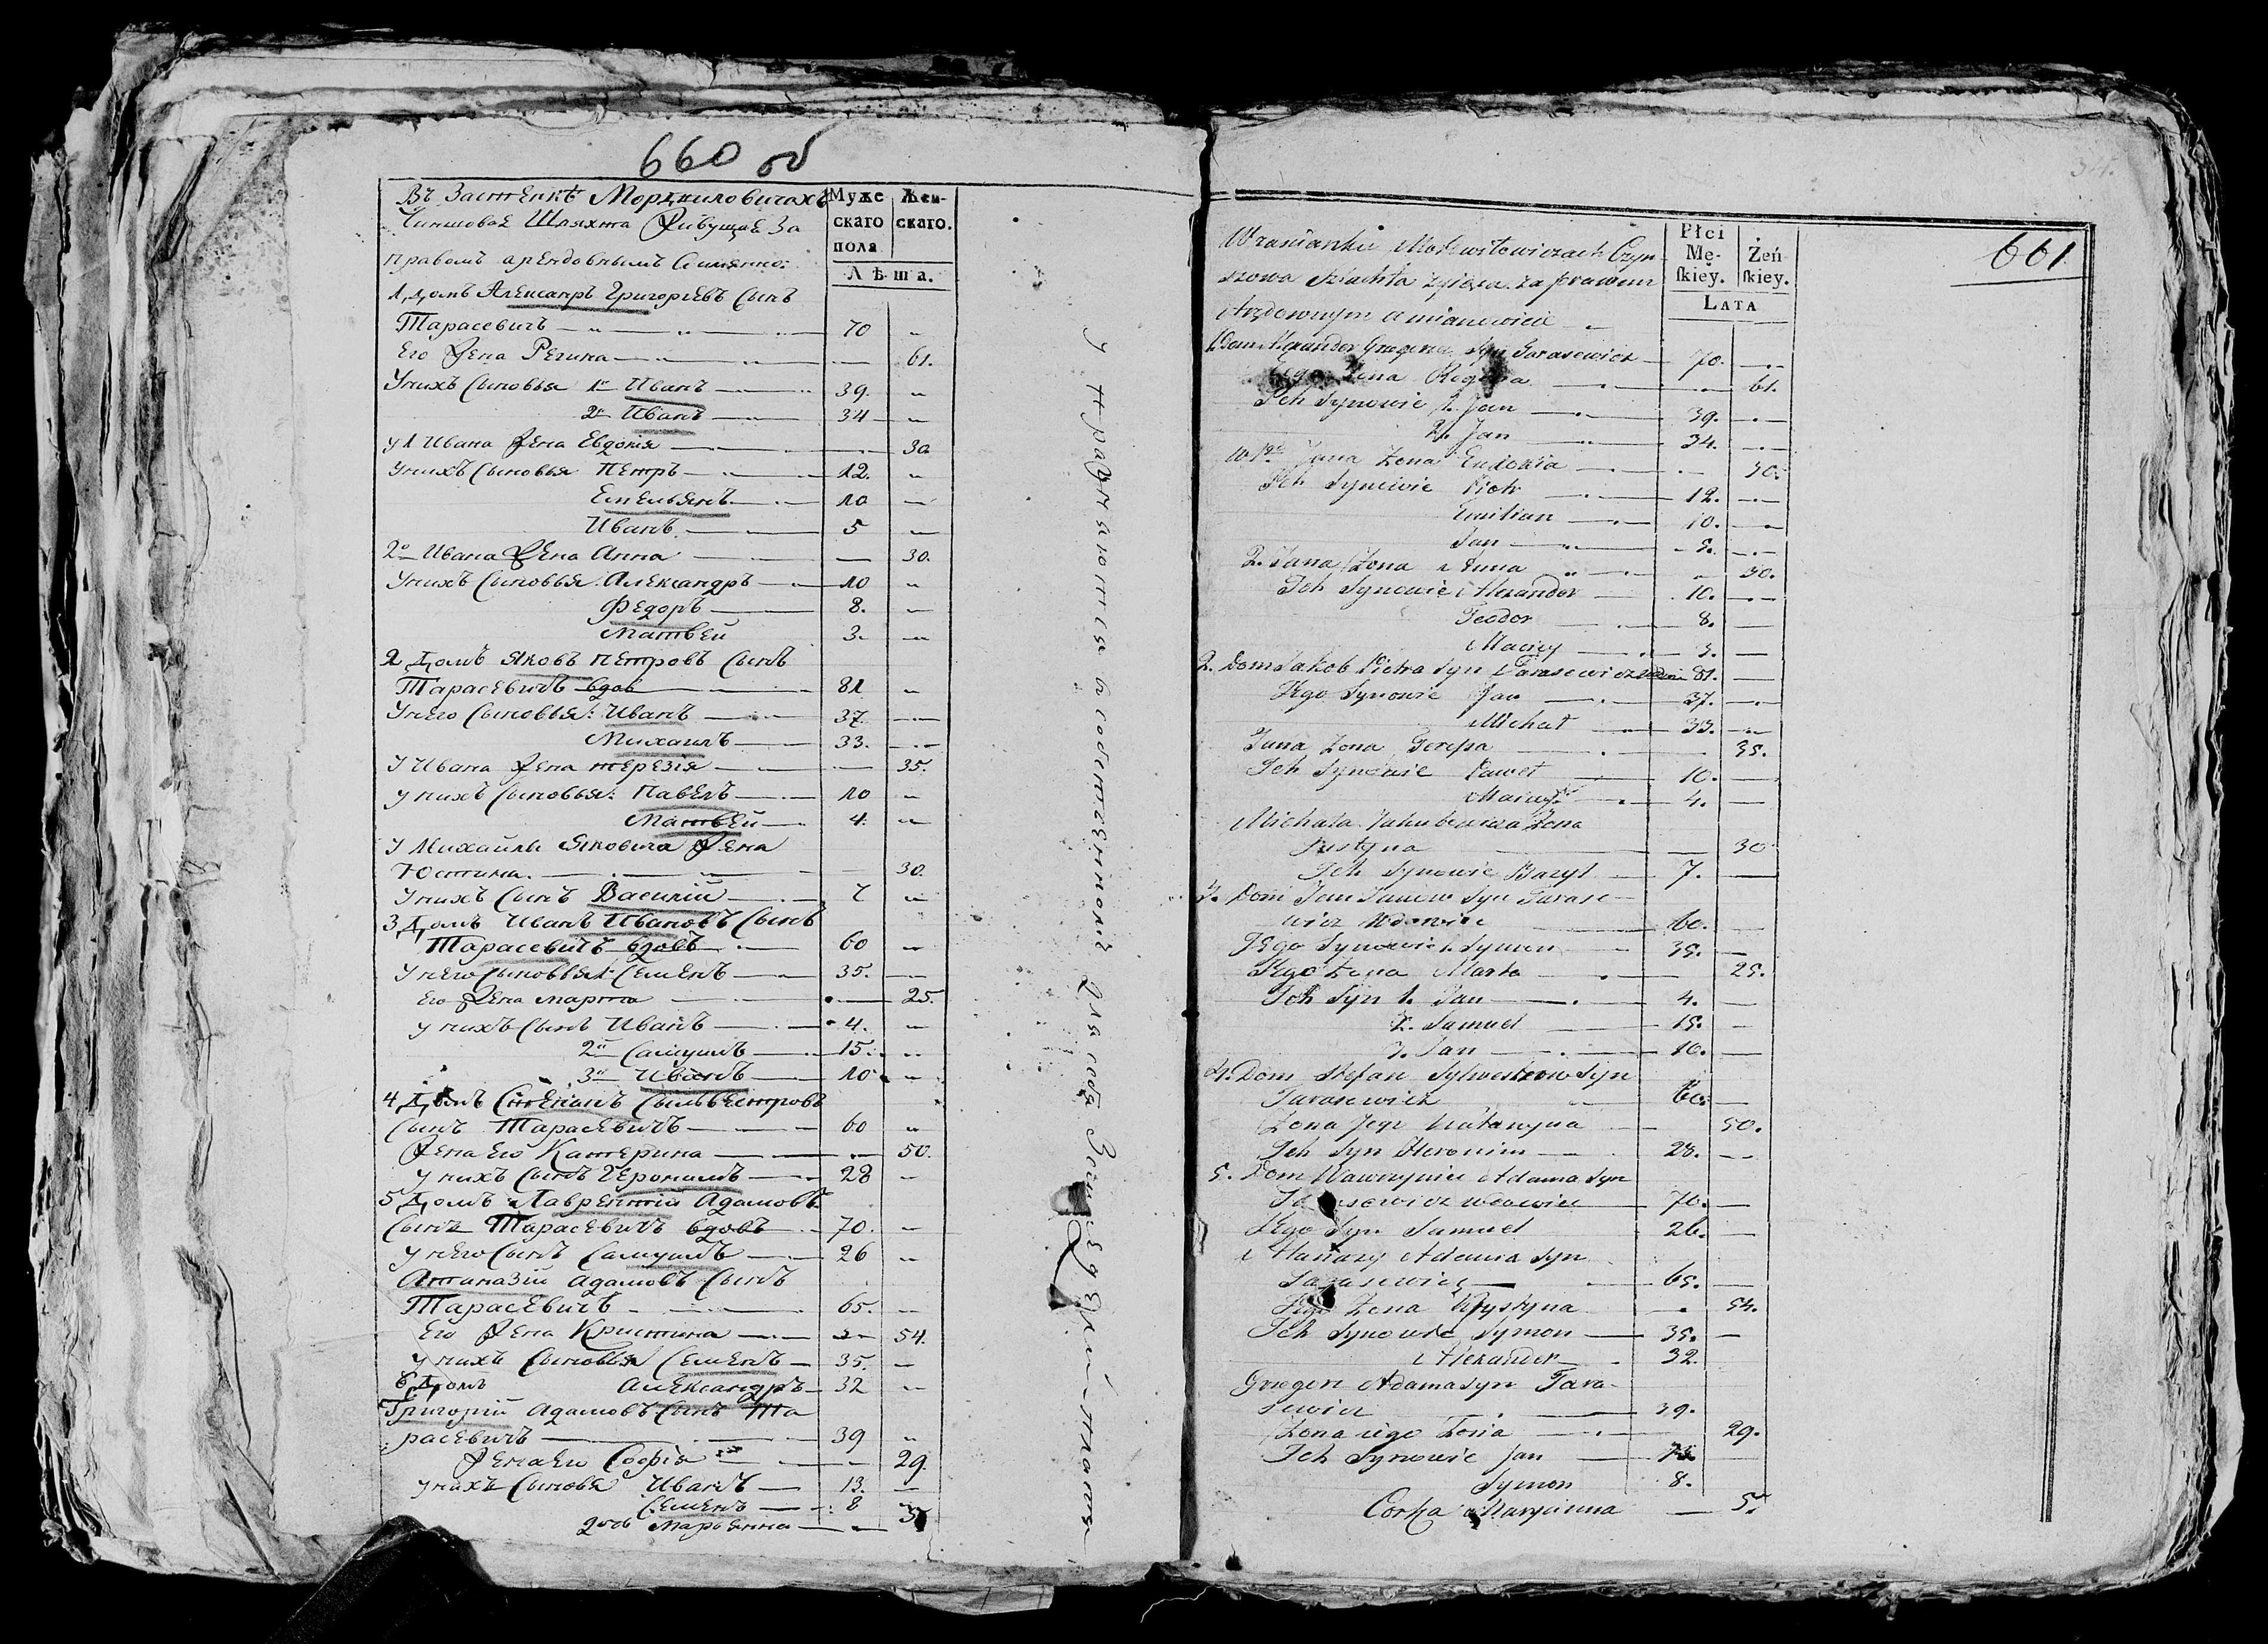 660 об
Въ Застенкѣ Морджиловичахъ
Чиншовая Шляхта Живущая За
правомъ арендовнымъ Аимянно:
Муже
скаго
пола
Жен-
скаго.
Лѣта.
1, Домъ Александръ Григорьевъ Сынъ
Тарасевичъ 70
Его Жена Регина 61.
Унихъ Сыновья 1й Иванъ 39.
2й Иванъ 34
у 1 Ивана Жена Евдокія 30
Унихъ Сыновья Петръ 12.
Емельянъ 10
Иванъ 5
2го Ивана Жена Анна 30.
Унихъ Сыновья: Александръ 10
Федоръ 8.
Матвей 3.
2, Домъ Яковъ Петровъ Сынъ
Тарасевичъ вдов 81
Унего Сыновья: Иванъ 37
Михаилъ 33.
У Ивана Жена терезія 35.
у нихъ Сыновья: Павелъ 10
Матвей 4.
У Михайлы Яковича Жена
Юстина. 30.
Унихъ Сынъ Василий 7
3, Домъ Иванъ Ивановъ Сынъ
Тарасевичъ вдовъ 60
Унего Сыновья 1й Семенъ 35.
Его Жена марта 25.
у нихъ Сынъ Иванъ 4.
2й Самуилъ 15.
3й Иванъ 10
4, Домъ Степанъ Сильвестровъ
Сынъ Тарасевичъ 60
Жена Его Катерина 50.
у нихъ Сынъ Геронимъ 28
5, Домъ Лаврентій Адамовъ
Сынъ Тарасевичъ вдовъ 70.
у него Сынъ Самуилъ 26
Атаназій Адамовъ Сынъ
Тарасевичъ 65.
Его Жена Кристина 54.
у нихъ Сыновья Семенъ 35.
Александръ 32
6, Домъ
Григорій Адамовъ Сынъ Та
расевичъ 39
Жена Его Софія 29.
унихъ Сыновья Иванъ 13.
Семенъ 8
дочь Марьянна 5
661
W zascianku Czyn
szowa szlachta żyjąca za prawem
Arędownym a mianowicie
Płci
Mę-
skiey.
Żeń
skiey.
LATA
1. Dom Alexander Gregora Syn Tarasewicz 70.
Jego Żena Regina 61.
Jch Synowie 1. Jan 39.
2. Jan 34.
1go Jana Żona Eudokia 30.
Jch Synowie Piotr 12.
Emilian 10.
Jan 5.
2. Jana Żona Anna 30.
Jch Synowie Alexander 10.
Teodor 8.
Maciey 3.
2. Dom Jakob Piotra Syn Tarasewicz 81.
Jego Synowie Jan 37.
Michał 33.
Jana Żona Teressa 35.
Jch Synowie Paweł 10.
Maciey 4.
Michała Jakubowicza Żona
Justyna 30
Jch Synowie Bazyl 7.
3. Dom Jan Janow Syn Tarase-
wicz Wdowiec 60.
Jego Synowie 1. Symon 35.
Jego Żona Marta 25.
Jch Syn 1. Jan 4.
2. Samuel 15.
3. Jan 10.
4. Dom Stefan Sylwestrow Syn
Tarasewicz 60.
Żona Jego Katarzyna 50.
Jch Syn Heronim 28.
5. Dom Wawrzyniec Adama Syn
Tarasewicz wdowiec 70.
Jego Syn Samuel 26.
Atanazy Adama Syn
Tarasewicz 65.
Jego Żena Krystyna 54.
Jch Synowie Symon 35.
Alexander 32.
Gregori Adama Syn Tara-
sewicz 39.
Żona iego Zofia 29.
Jch Synowie Jan
Symon 8.
Corka Maryanna 5.